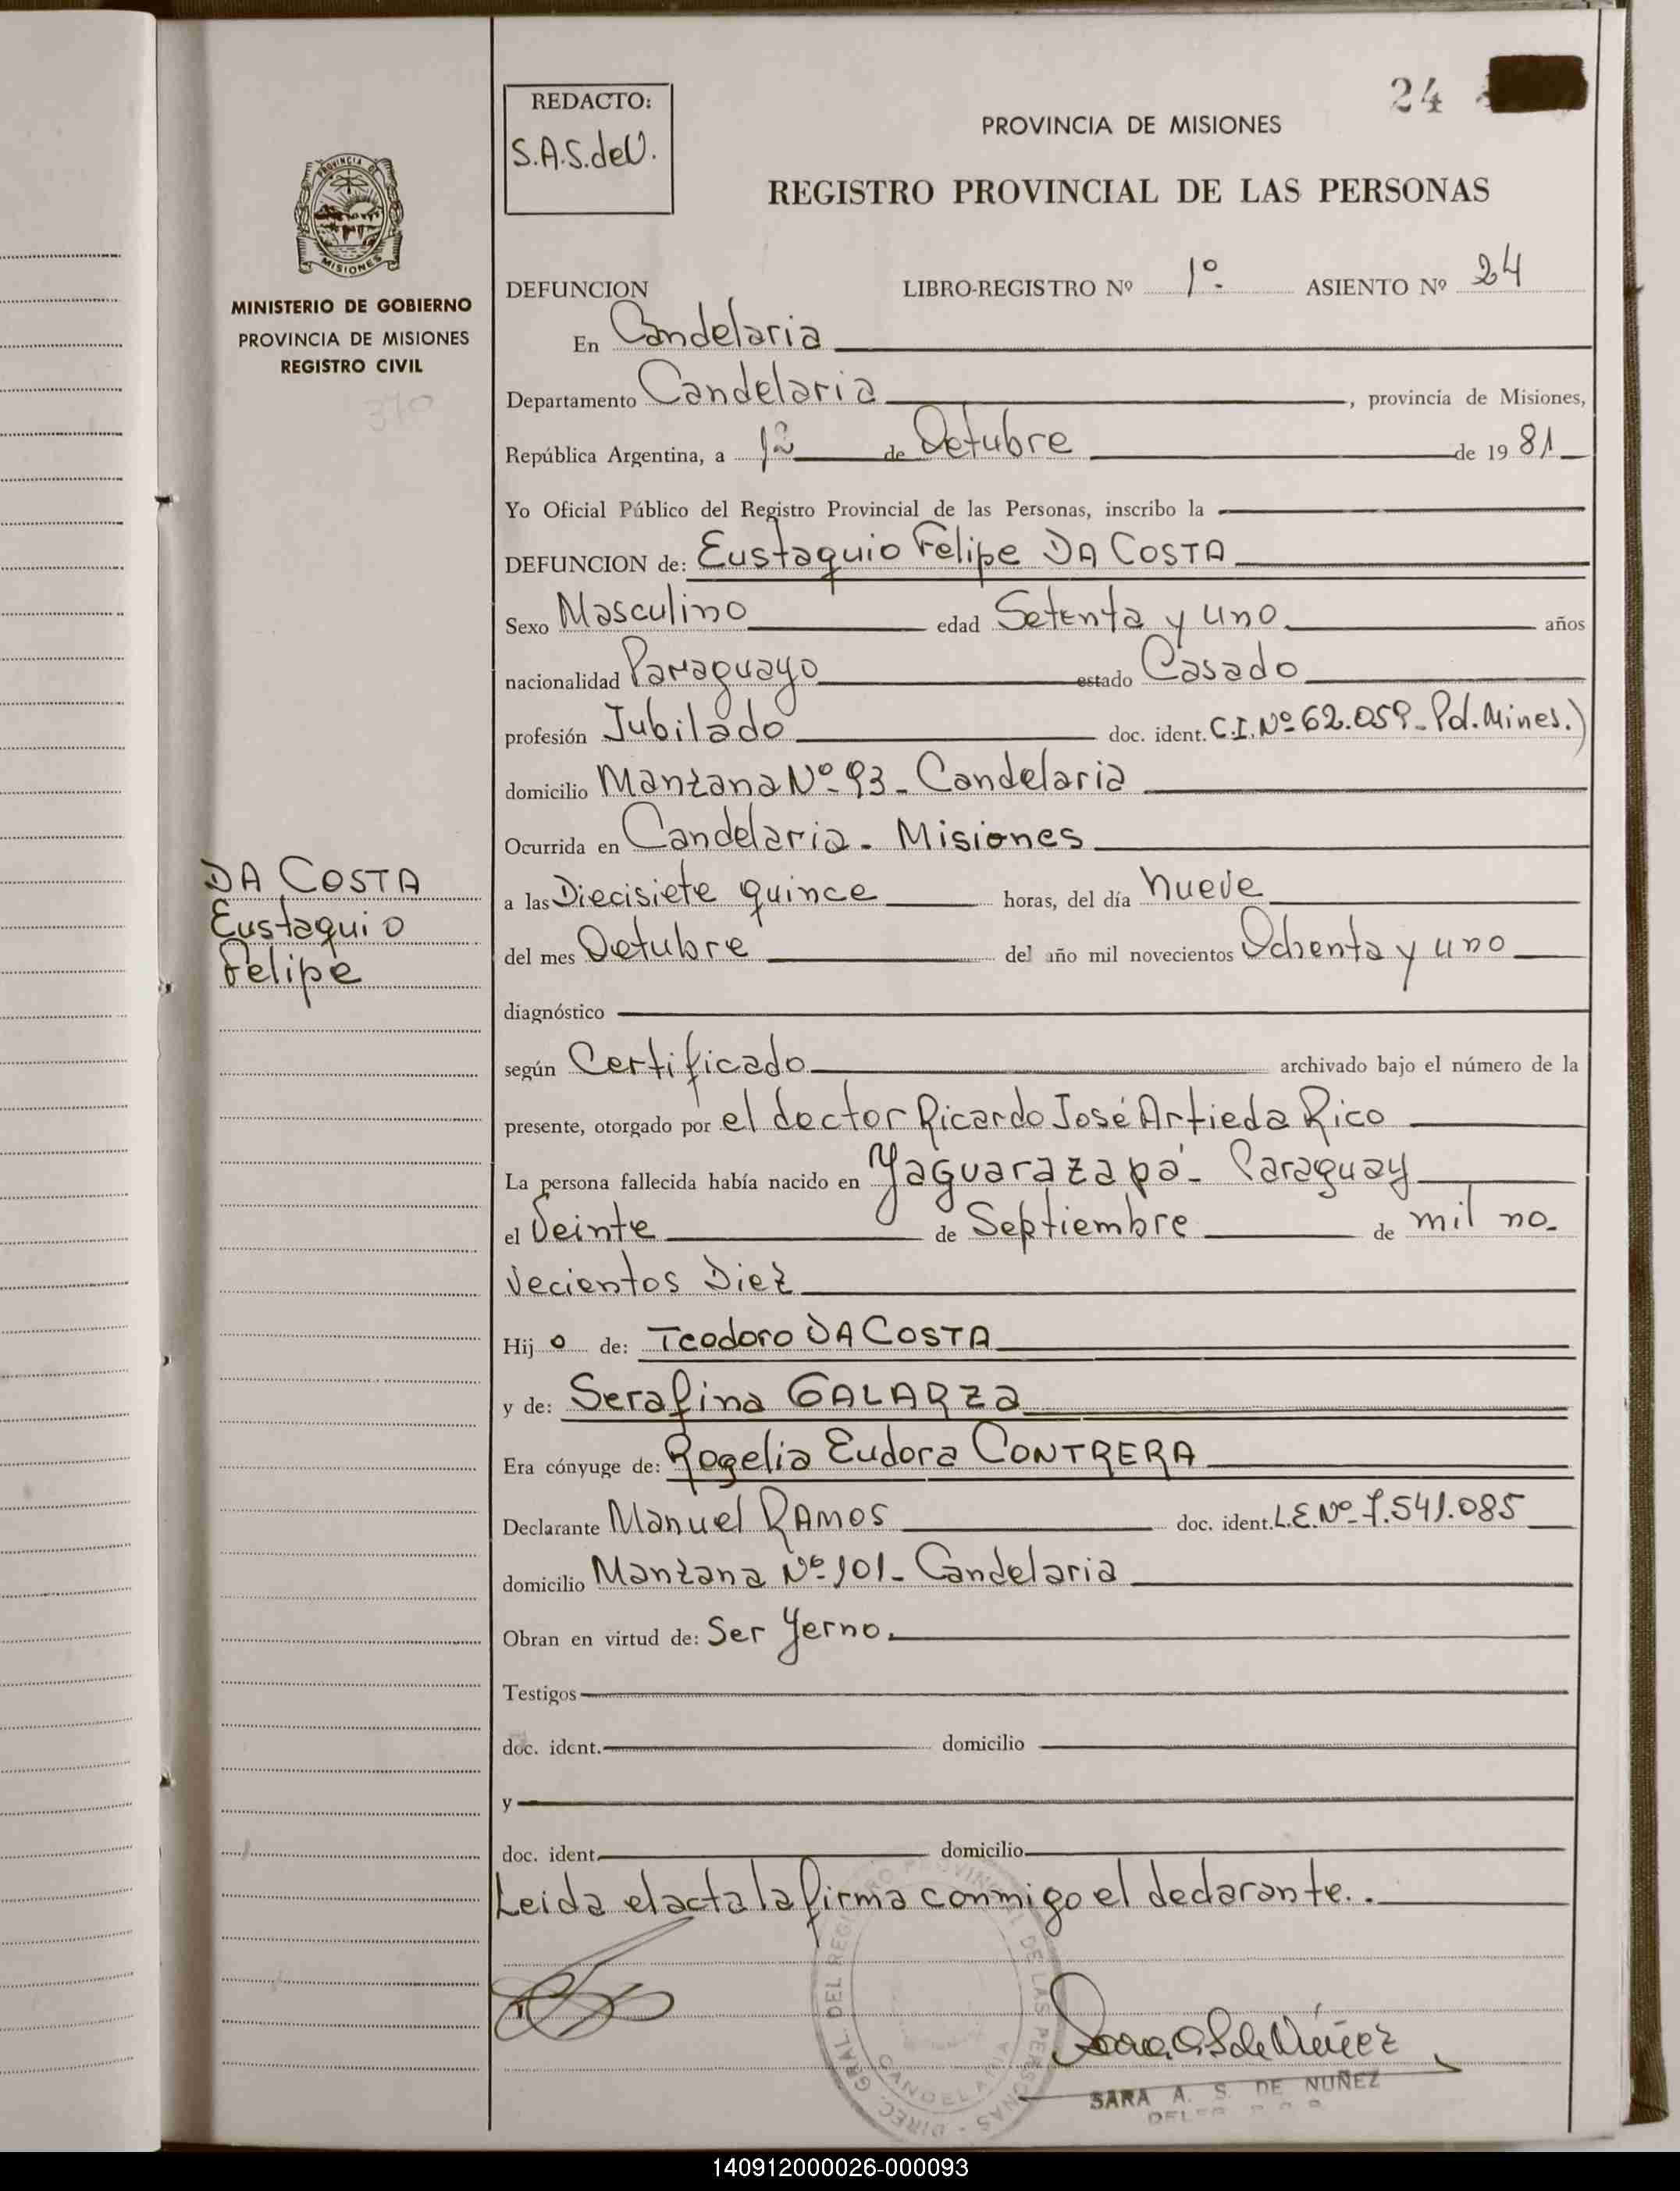 24
REDACTO:
S.A.S.deU.
PROVINCIA DE MISIONES
REGISTRO PROVINCIAL DE LAS PERSONAS
PROVINCIA DE
MISIONES
MINISTERIO DE GOBIERNO
PROVINCIA DE MISIONES
REGISTRO CIVIL
370
DEFUNCION LIBRO-REGISTRO Nº 1º- ASIENTO Nº 24
En Candelaria
Departamento Candelaria, provincia de Misiones,
República Argentina, a 12 de Octubre de 1981
Yo Oficial Público del Registro Provincial de las Personas, inscribo la
DEFUNCION de: Eustaquio Felipe DA COSTA
Sexo Masculino edad Setenta y uno años
nacionalidad Paraguayo estado Casado
profesión Jubilado doc. ident. C.I.Nº 62.059-Pd.Mines.)
domicilio Manzana Nº 93- Candelaria
Ocurrida en Candelaria- Misiones
DA COSTA
Eustaquio
Felipe
a las Diecisiete quince horas, del día nueve
del mes Octubre del año mil novecientos Ochenta y uno
diagnóstico
según Certificado archivado bajo el número de la
presente, otorgado por el doctor Ricardo José Artieda Rico
La persona fallecida había nacido en Yaguarazapá- Paraguay
el Veinte de Septiembre de mil no-
vecientos Diez
Hijo de: Teodoro DA COSTA
y de: Serafina GALARZa
Era cónyuge de: Rogelia Eudora CONTRERA
Declarante Manuel RAMOS doc. ident. L.E.Nº 7.541.085
domicilio Manzana Nº 101- Candelaria
Obran en virtud de: Ser Yerno.
Testigos
doc. ident. domicilio
y
doc. ident. domicilio
Leida el acta la firma conmigo el declarante..
DIREC. GRAL. DEL REGISTRO PROVINCIAL DE LAS PERSONAS -
CANDELARIA
Sara A S de Núñez
SARA A. S. DE NUÑEZ
140912000026-000093